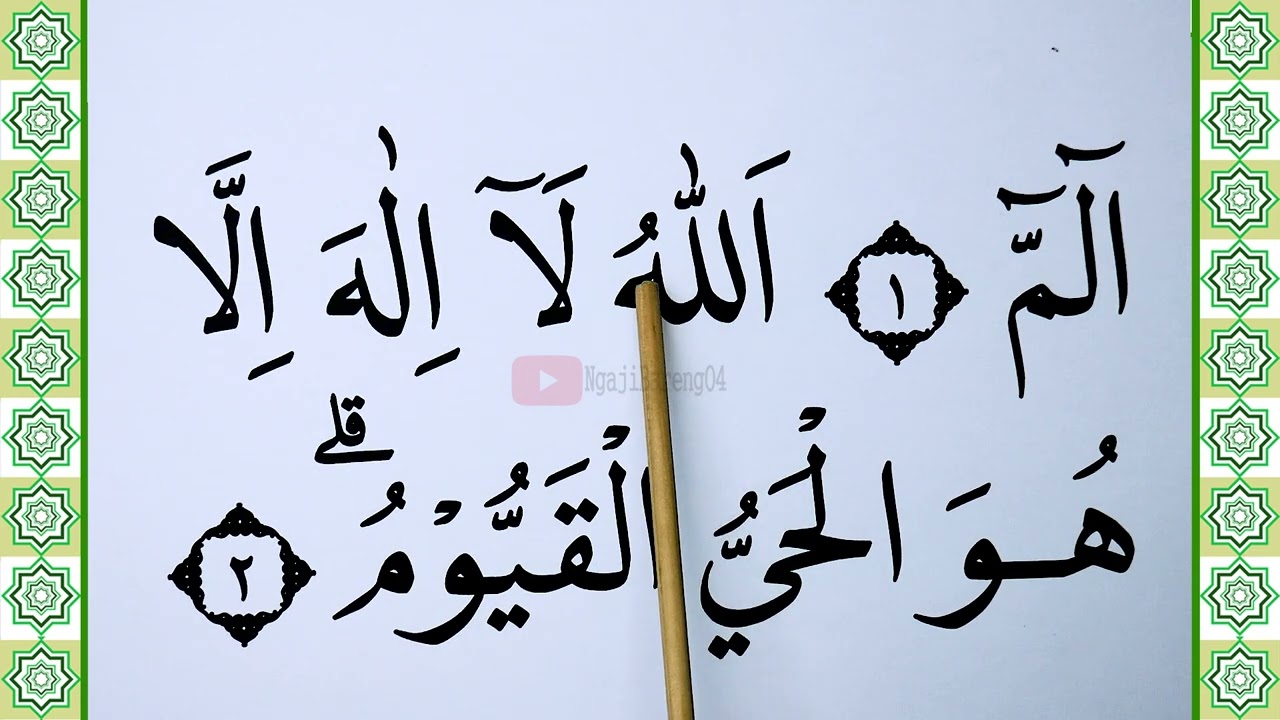 الٓمّٓ ۝١ اَللّٰهُ لَآ اِلٰهَ اِلَّا
هُوَ الْحَيُّ الْقَيُّوْمُ ۗ ۝٢
NgajiBareng04